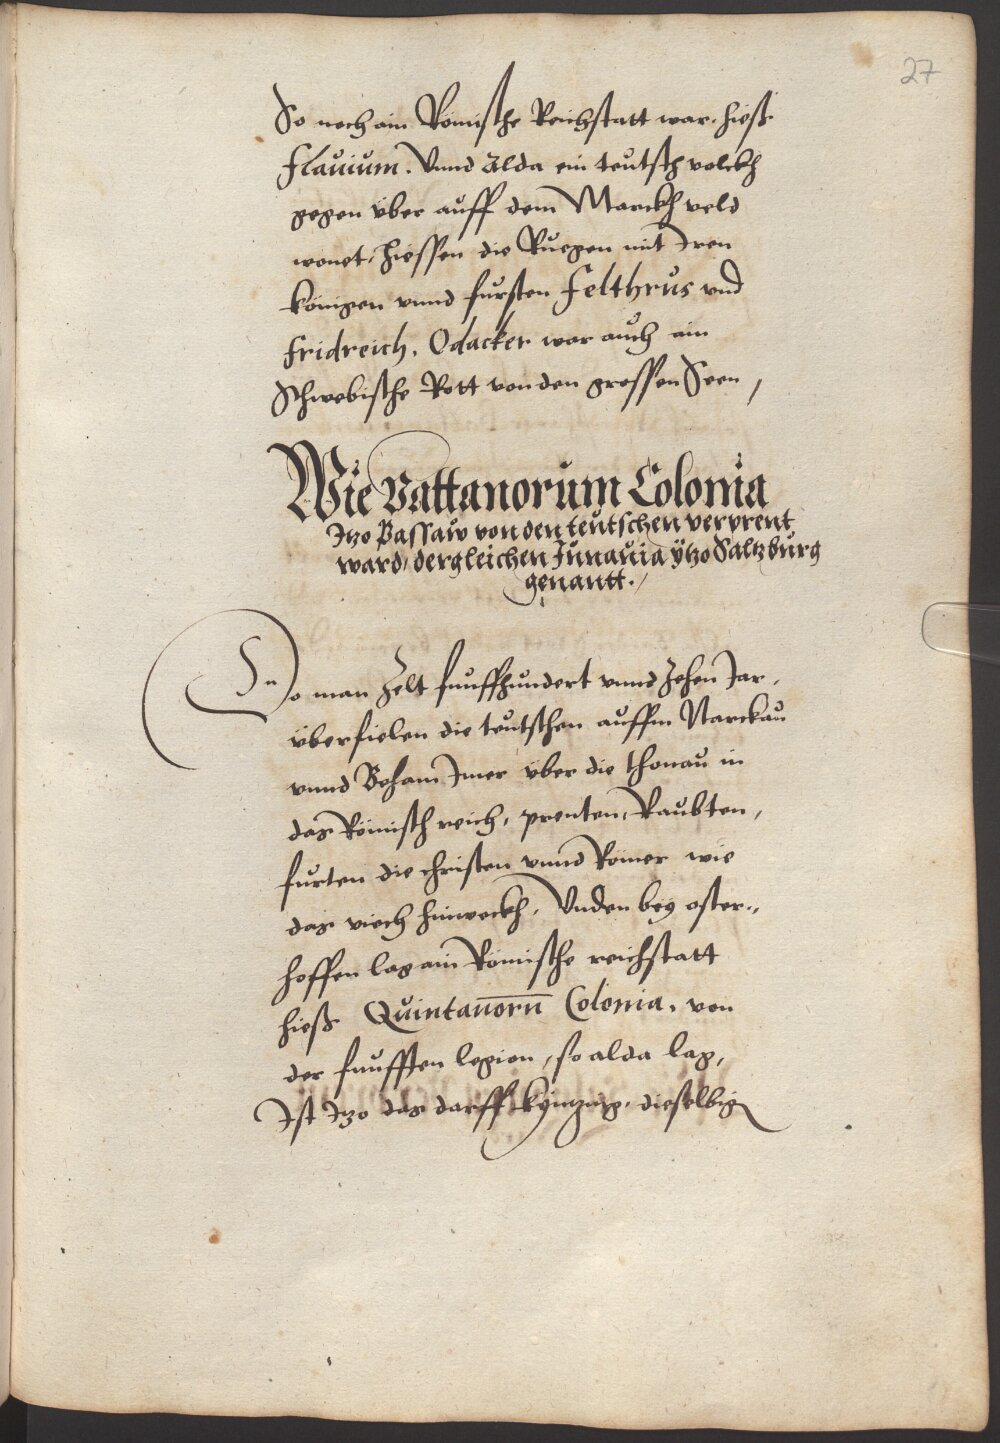 27
So noch ain Römische Reichstatt war, hieß
Flauium. Vnnd Alda ein teutsch volckh
gegen über auff dem Marckhveld
wonet, hiessen die Ruegen mit Iren
königen vnnd fursten Felthrus vnd
Fridreich. Odacker war auch ain
Schwebische Rott von den grossen Seen,
Wie Vattanorum Colonia
Itzo Passaw von den teutschen verprent
ward, dergleichen Junauia ytzo Saltzburg
genantt.
Do man Zelt funffhundert vnnd Zehen Jar,
überfielen die teutschen auffm Narckau
vnnd Beham Imer über die thonau in
das Römisch reich, prenten, Raubten,
furten die christen vnnd Römer wie
das viech hinweckh. Vnden bey oster-
hoffen lag ain Römische reichstatt
hieß Quintanorn̄ Colonia, von
der funfften legion, so alda lag,
Ist Itzo das darff kyntzing, dieselbig